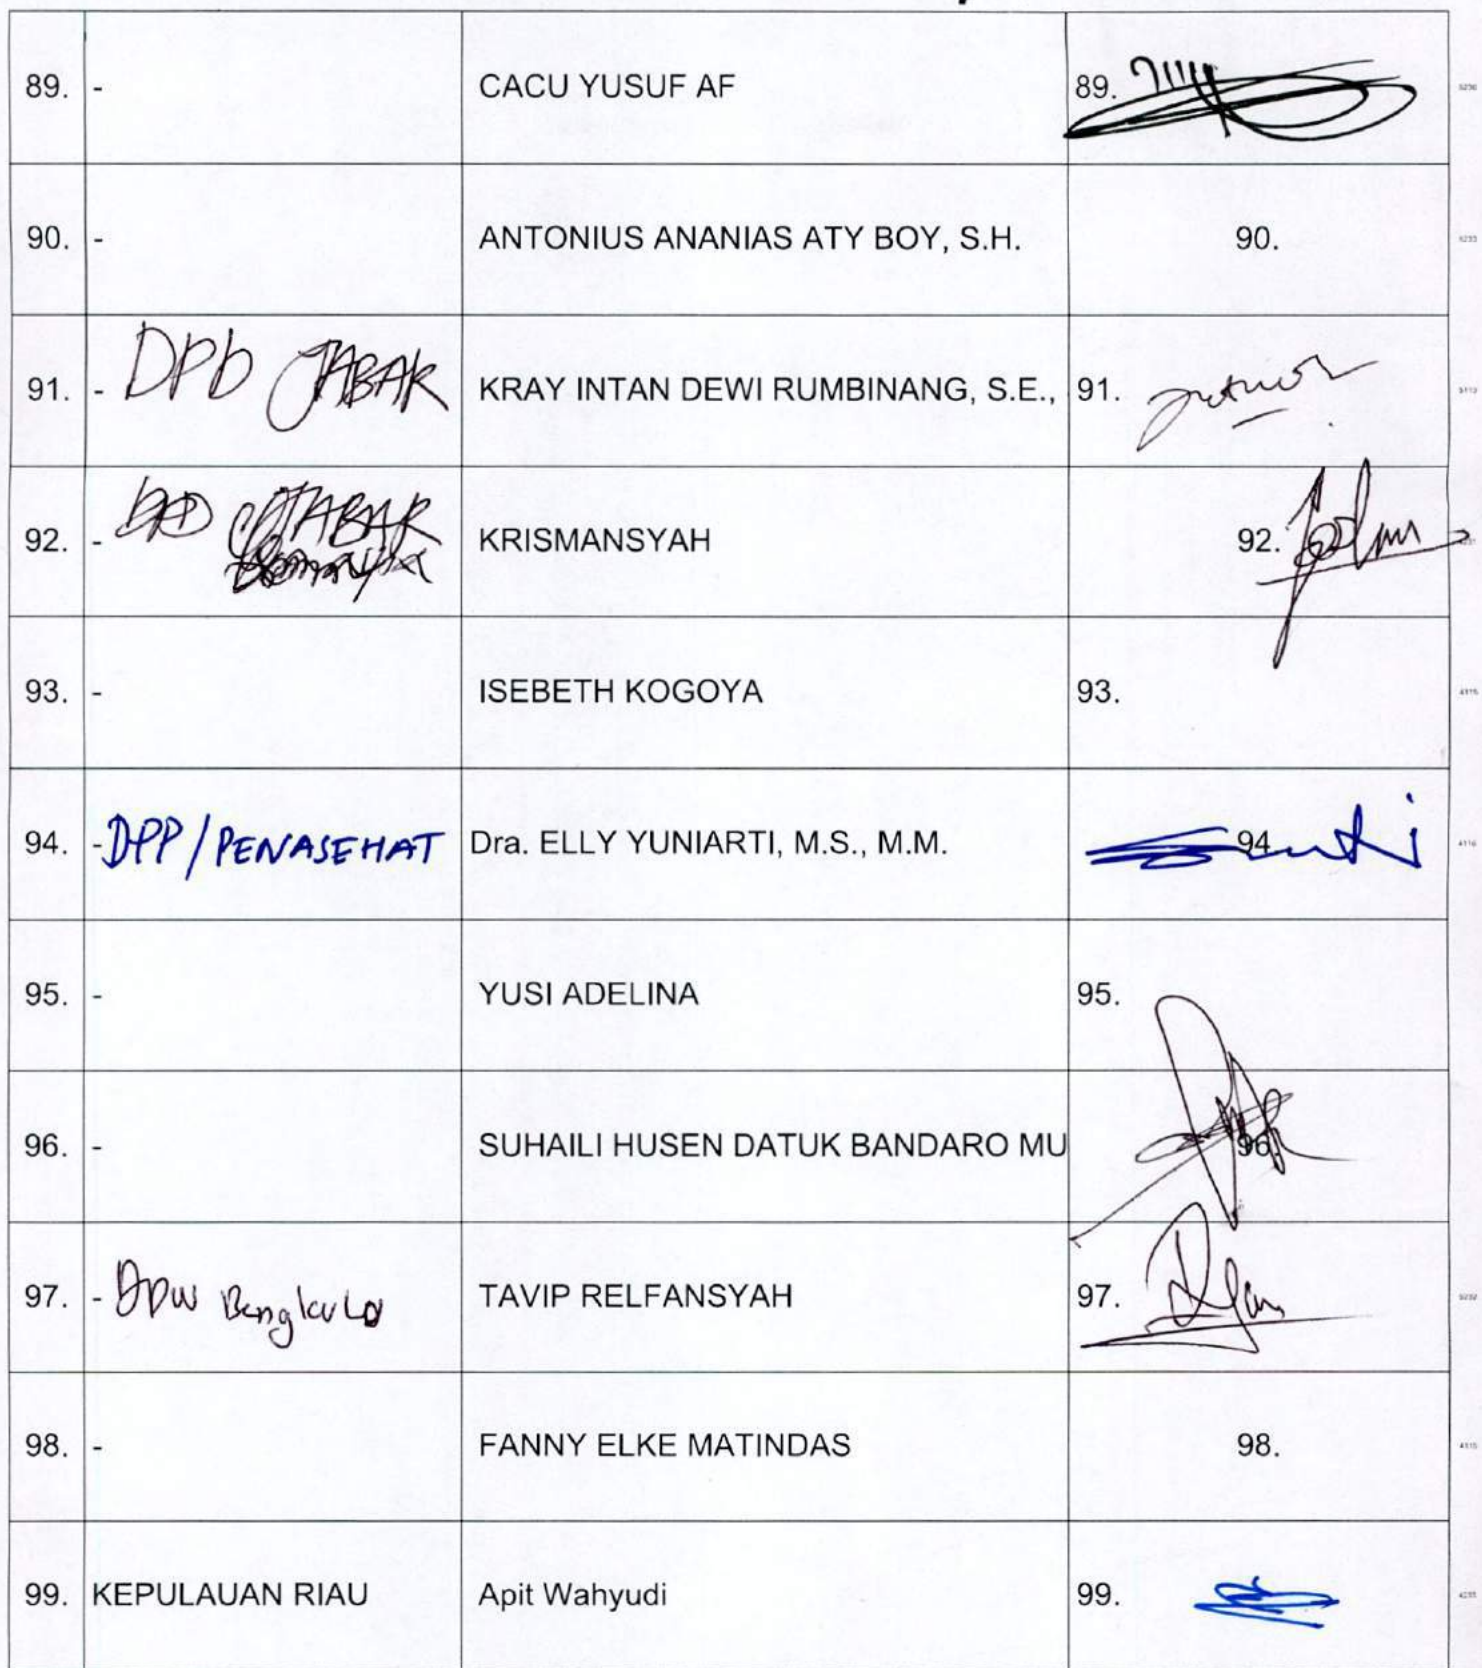 89. - CACU YUSUF AF 89.
90. - ANTONIUS ANANIAS ATY BOY, S.H. 90.
91. - DPD JABAR KRAY INTAN DEWI RUMBINANG, S.E., 91.
92. - JABAR KRISMANSYAH 92.
93. - ISEBETH KOGOYA 93.
94. - DPP/PENASEHAT Dra. ELLY YUNIARTI, M.S., M.M. 94.
95. - YUSI ADELINA 95.
96. - SUHAILI HUSEN DATUK BANDARO MU 96.
97. - DPW Bengkulu TAVIP RELFANSYAH 97.
98. - FANNY ELKE MATINDAS 98.
99. KEPULAUAN RIAU Apit Wahyudi 99.